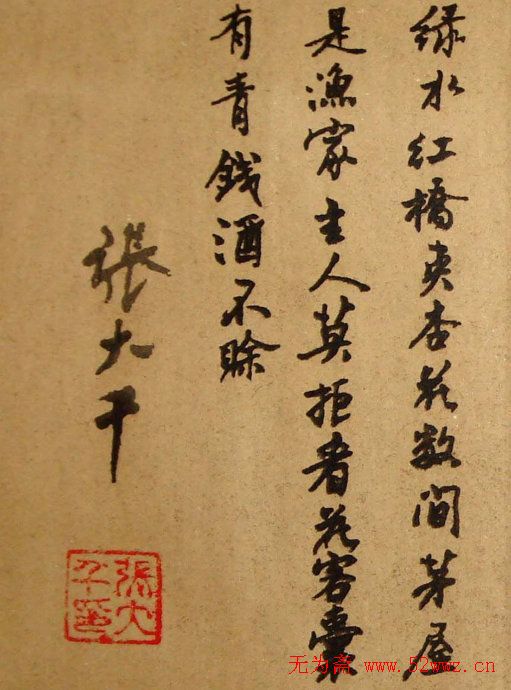 緑水红橋夹杏花数间茅屋
是漁家主人莫拒看花客囊
有青錢酒不賒
張大千
張大
千印
无为斋 www.52wwz.cn